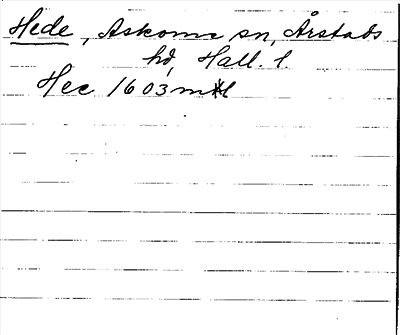 Hede, Askome sn, Årstads
hd, Hall. l.
Hee 1603 mtl